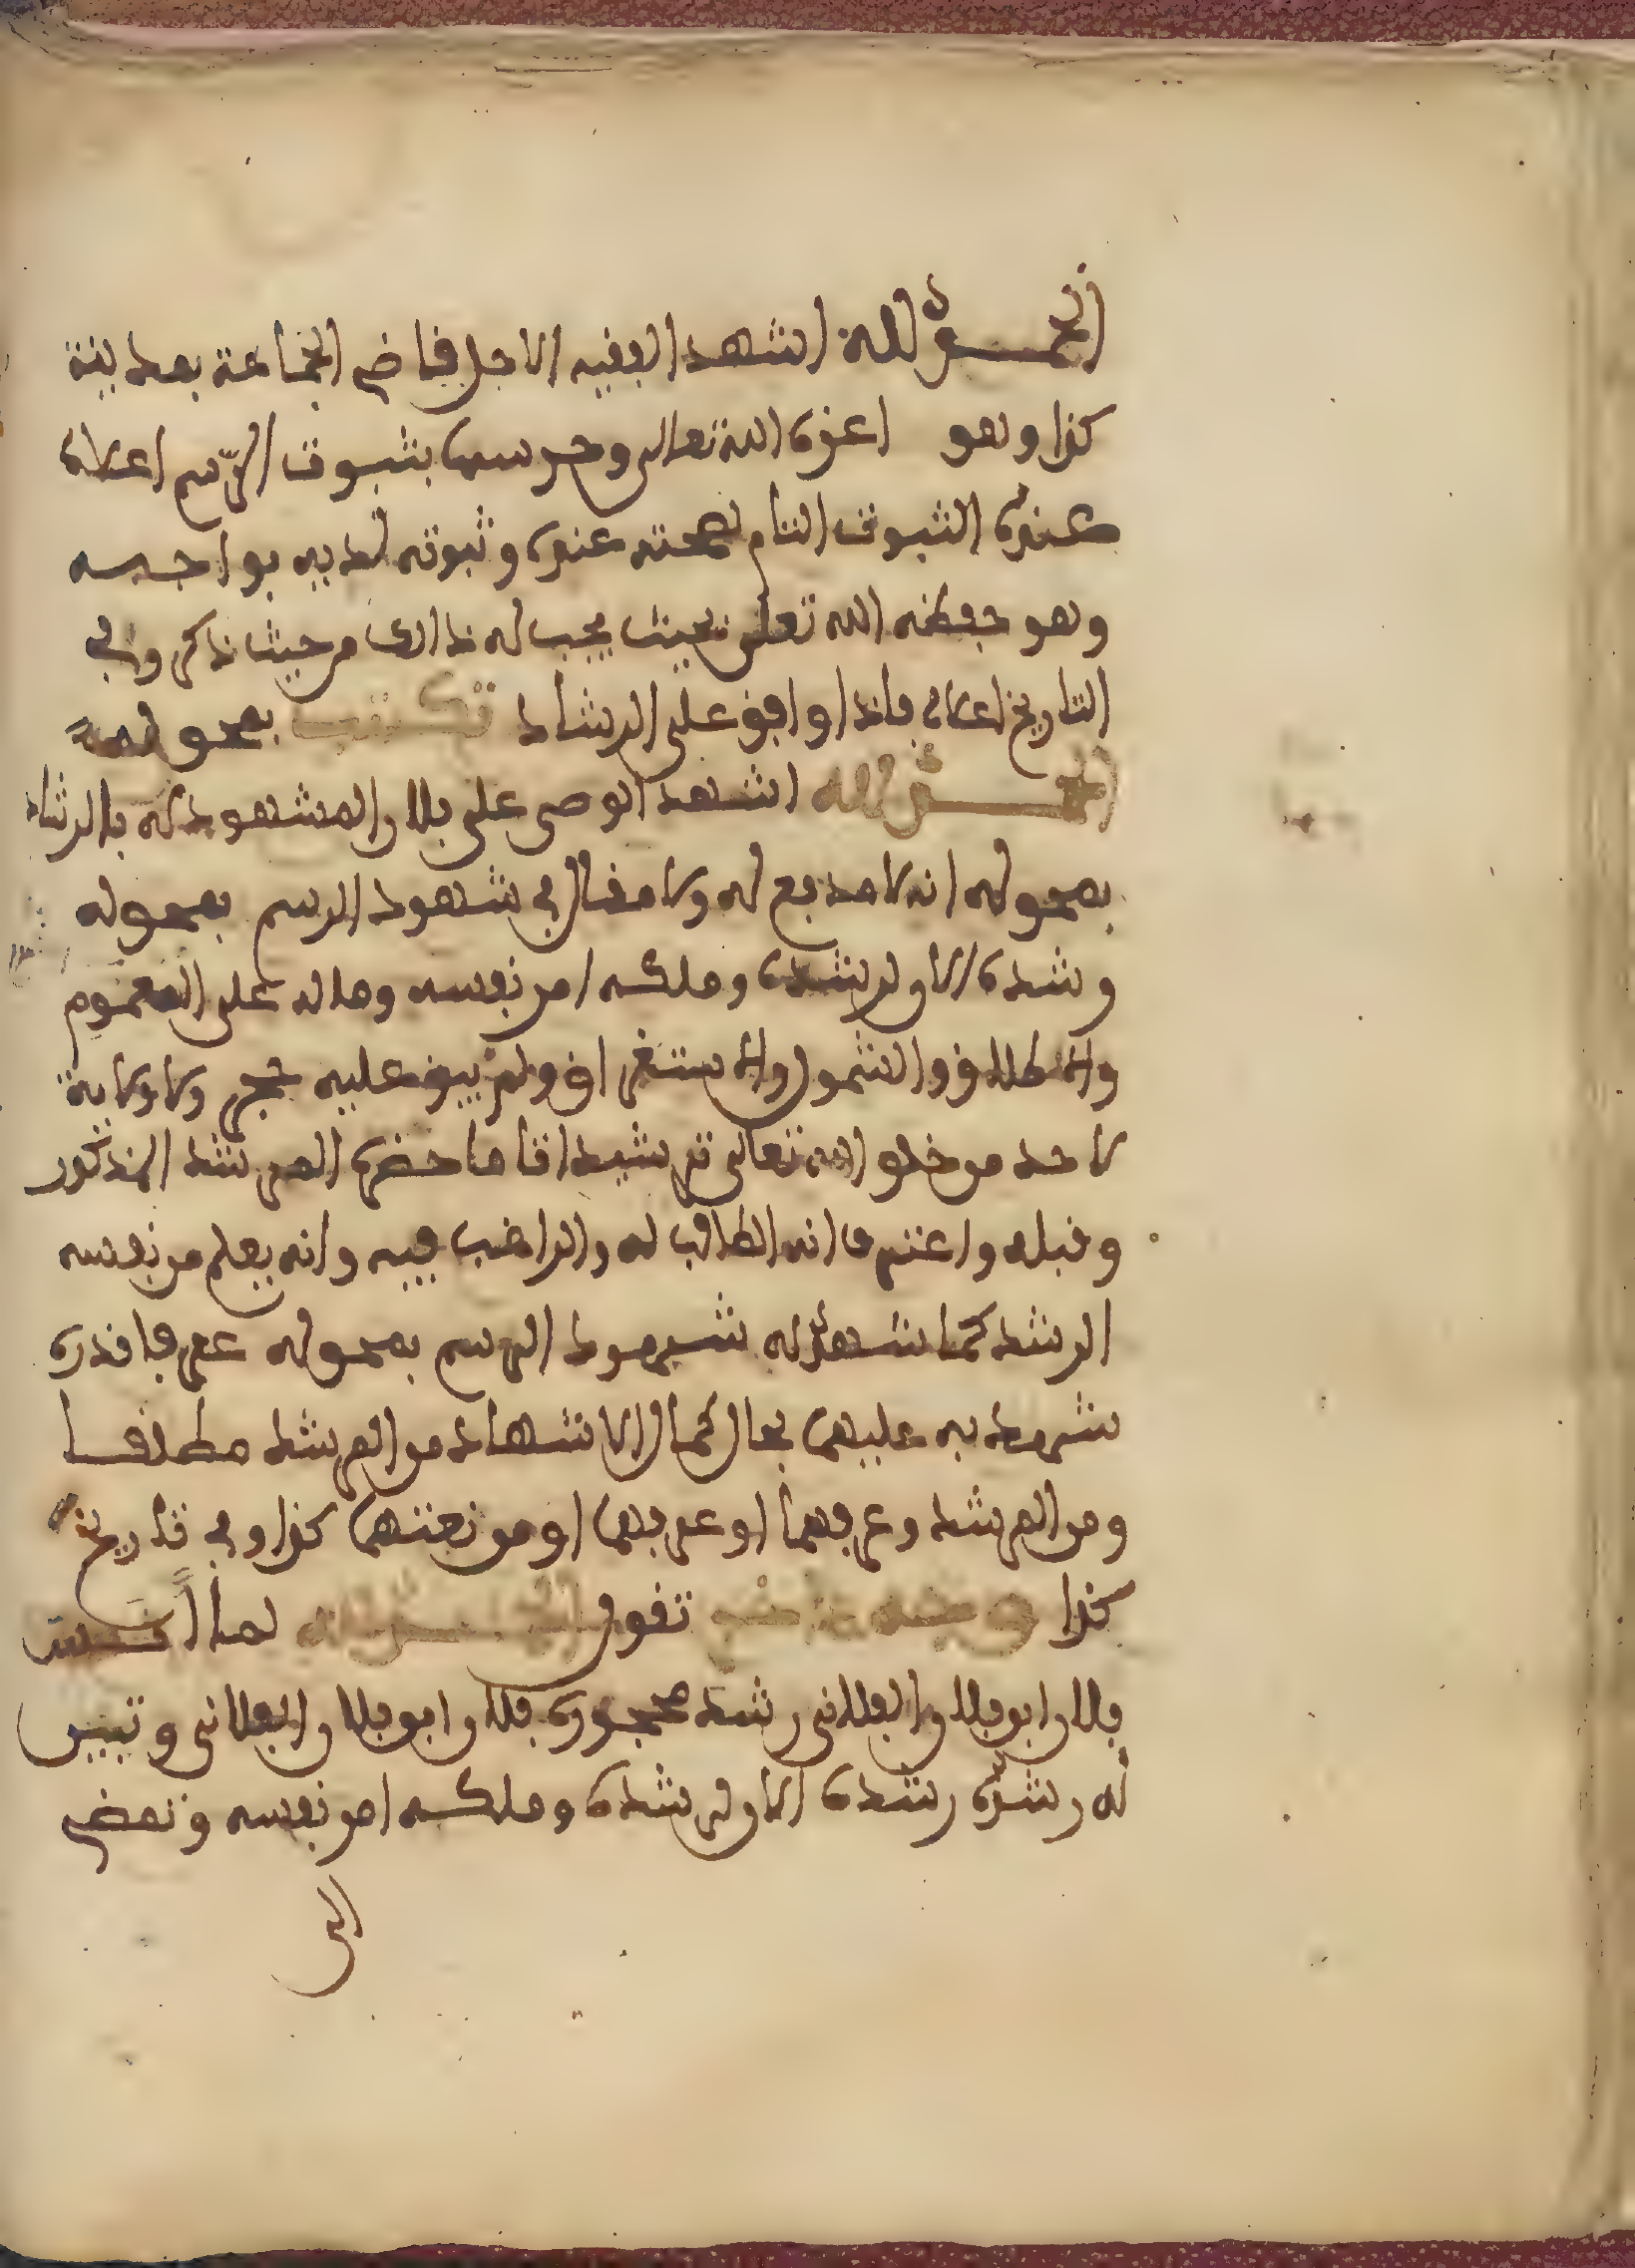 الحمد لله اشهد الفقيه الاجل قاضي الجماعة بمدينة
كذا وهو اعزه الله تعالى وحرسها بثبوت الرسم اعلاه
عنده الثبوت التام لصحته عنده وثبوته لديه بواجبه
وهو حفظه الله تعلى بحيث يجب له ذالك من حيث ذكر وفي
التاريخ اعلاه فاذا وافق على الرشاد تكتب بمحوله
الحمد لله اشهد الوصي على فلان المشهود له بالرشاد
بمحوله انه لا مدفع له ولا مقال في شهود الرسم بمحوله
وشده الاول رشده وملكه امر نفسه وماله على العموم
والاطلاق والشمول والاستغراق ولم يبق عليه حجر ولا ولاية
لاحد من خلق الله تعالى ترشيدا تاما حضره المرشد المذكور
وقبله واعترف انه الطالب له والراغب فيه وانه يعلم من نفسه
الرشد كما شهد له شهود الرسم بمحوله عرفا قدره
شهد به عليهما بحال كمال الاشهاد من المرشد مطلقا
ومن المرشد وعرفهما او عرف بهما او من نعتهما كذا وفي تاريخ
كذا تقول الحمد لله لما
فلان ابو فلان الفلاني رشد محجوره فلان ابو فلان الفلاني وتبين
له رشده رشده الاول رشده وملكه امر نفسه ونهض
الى